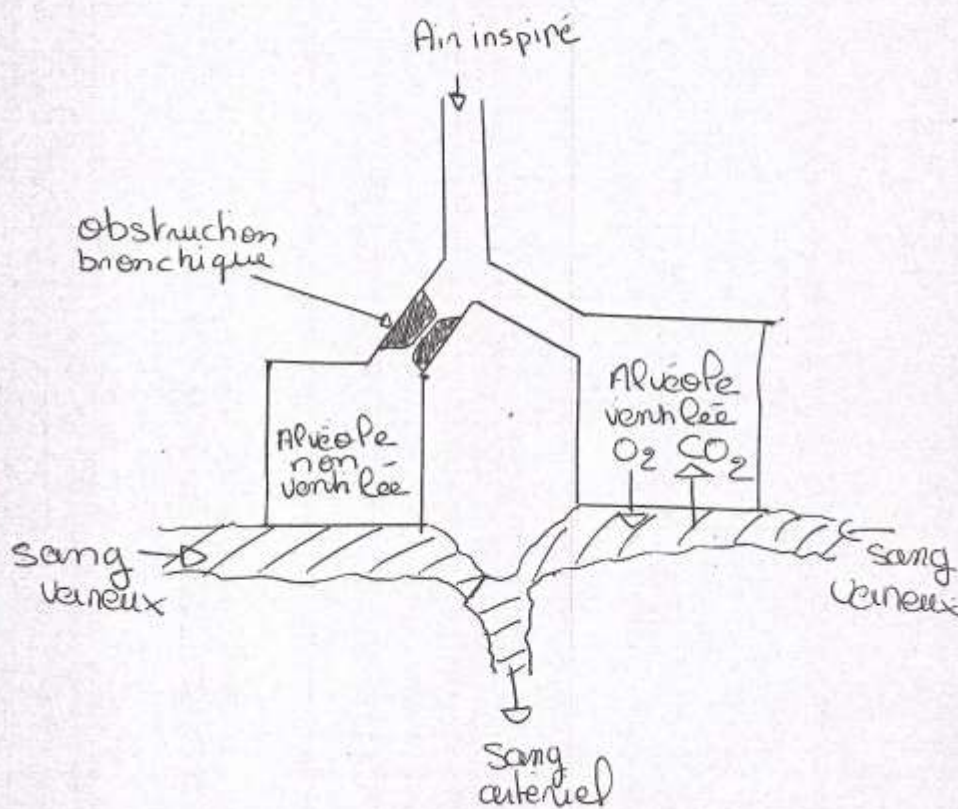 Air inspiré
obstruction
bronchique
Alvéole
non
ventilée
Alvéole
ventilée
O₂ CO₂
sang
veineux
sang
veineux
sang
artériel